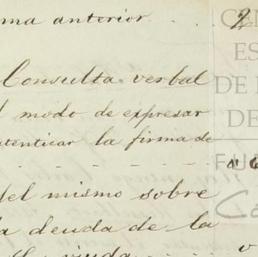 ma anterior . . . 2
Consulta verbal
l modo de expresar
tenticar la firma de
- - - - - - - " 6
del mismo sobre
la deuda de la
viuda
CE
ES
DE
DE
FU
Ca